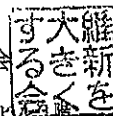 維新を
大きく
する会